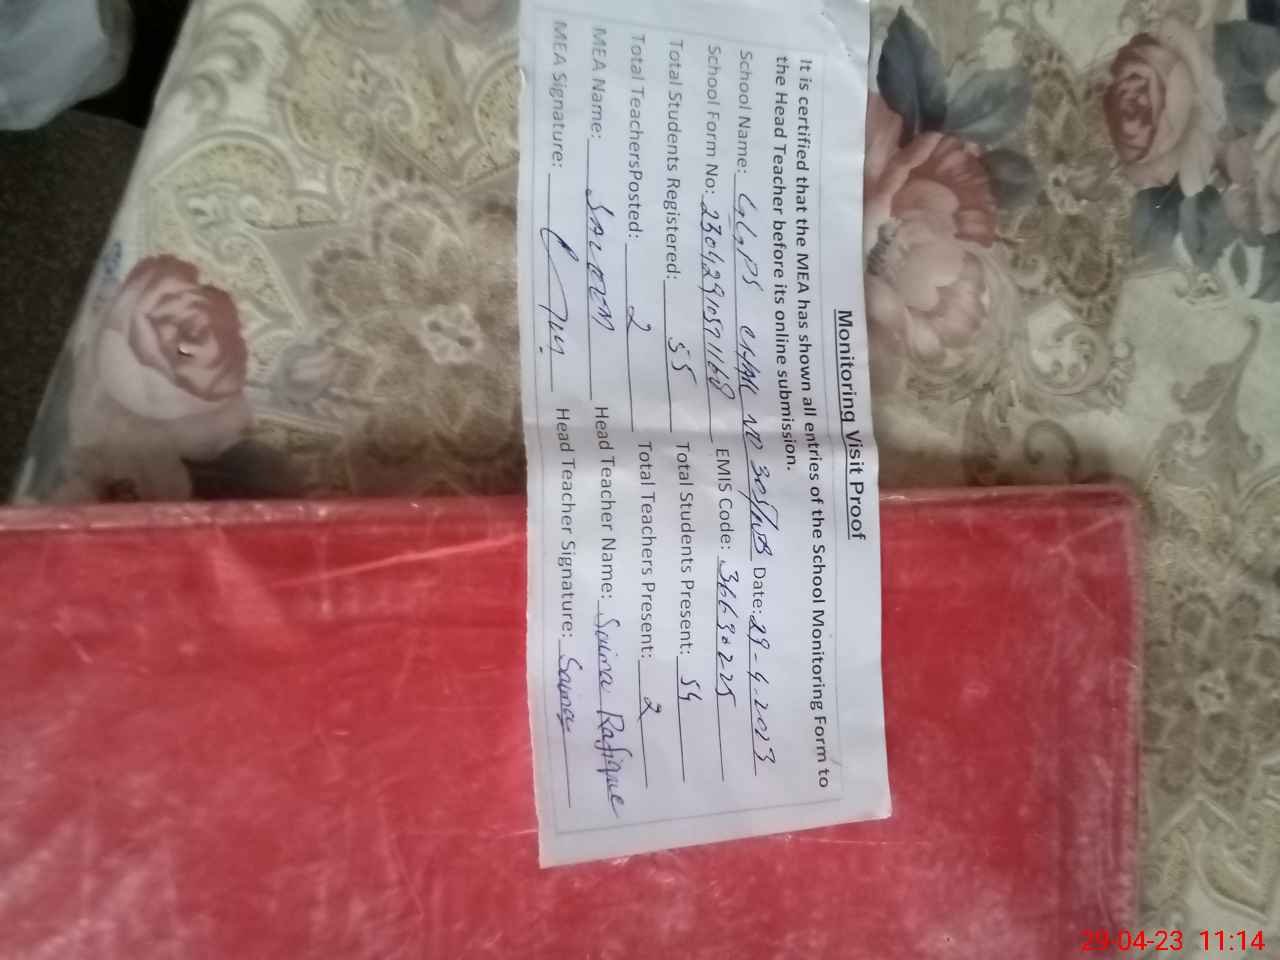 Monitoring Visit Proof
It is certified that the MEA has shown all entries of the School Monitoring Form to
the Head Teacher before its online submission.
School Name: GGPS CHAK NO 305/WB Date: 29-4-2023
School Form No: EMIS Code:
Total Students Registered: 55 Total Students Present: 54
Total TeachersPosted: 2 Total Teachers Present: 2
MEA Name: Head Teacher Name: Saima Rafique
MEA Signature: Head Teacher Signature: Saima
29-04-23 11:14